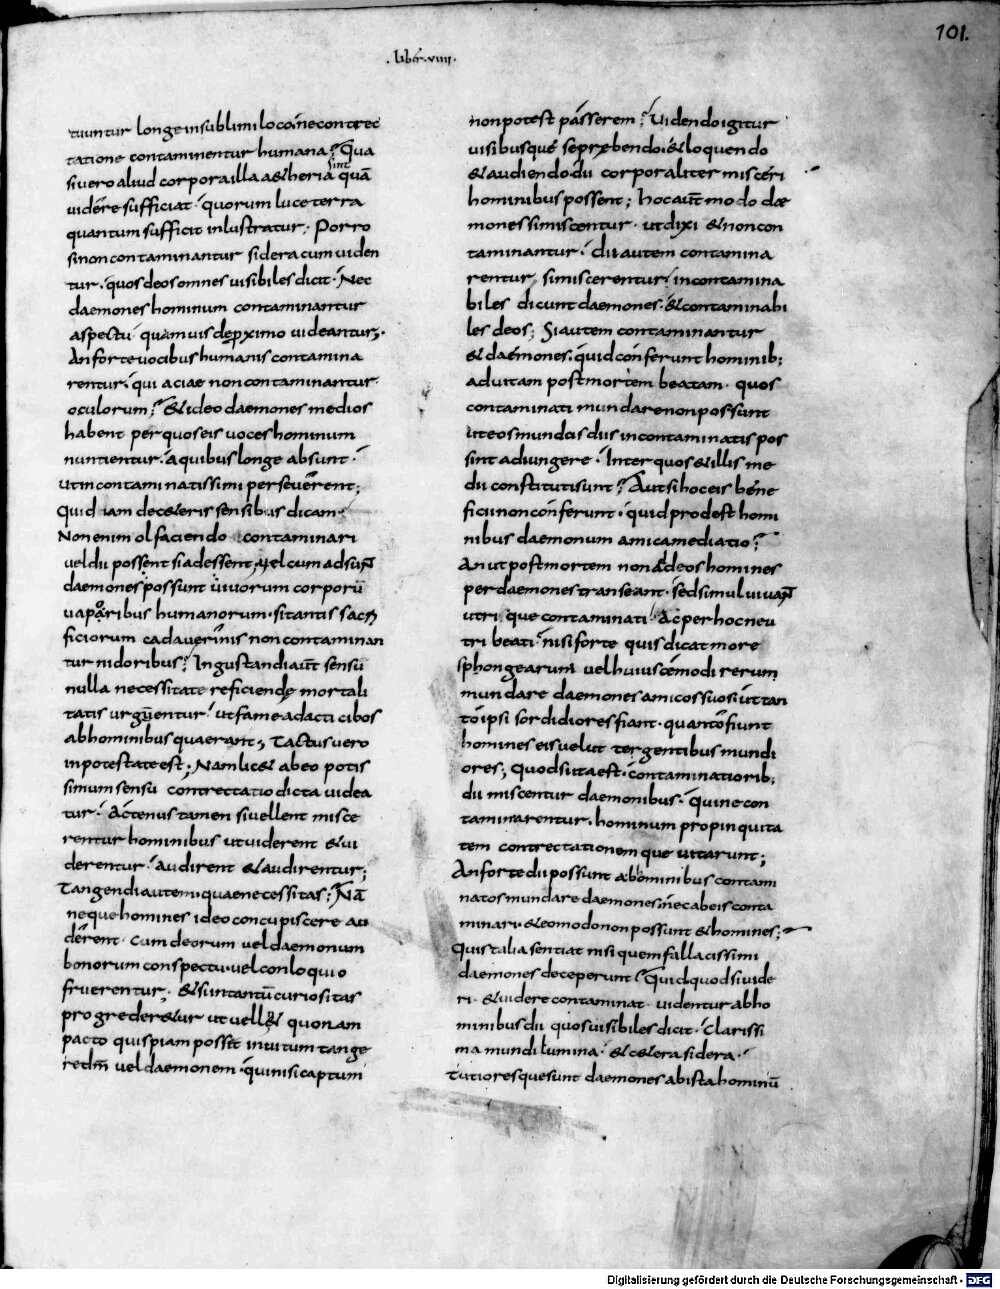 101.
.liber.viiii.
tuuntur longe in sublimi loco ne contrec
tatione contaminentur humana? Qua
si uero aliud corpora illa aetheria sint quā
uidere sufficiat. quorum luce terra
quantum sufficit inlustratur; Porro
si non contaminantur sidera cum uiden
tur. quos deos omnes uisibiles dicit. Nec
daemones hominum contaminantur
aspectu quamuis de proximo uideantur;
An forte uocibus humanis contamina
rentur. qui aciae non contaminantur
oculorum? & ideo daemones medios
habent per quos eis uoces hominum
nuntientur. a quibus longe absunt.
ut incontaminatissimi perseuerent;
Quid iam de ceteris sensibus dicam.
Non enim olfaciendo contaminari
uel dii possent si adessent. uel cum adsunt
daemones possunt uiuorum corporū
uaporibus humanorum. si tantis sacri
ficiorum cadauerinis non contaminan
tur nidoribus? In gustandi aut̄ sensu
nulla necessitate reficiendę mortali
tatis urguentur. ut fame adacti cibos
ab hominibus quaerant; Tactus uero
in potestate est; Nam lic& ab eo potis
simum sensu contrectatio dicta uidea
tur. Actenus tamen si uellent misce
rentur hominibus ut uiderent & ui
derentur. Audirent & audirentur;
Tangendi autem. quae necessitas? Nā
neque homines id eo concupiscere au
derent. cum deorum uel daemonum
bonorum conspectu. uel conloquio
fruerentur; & si in tantū curiositas
progreder&ur ut uell& quonam
pacto quispiam posset inuitum tange
re dm̄ uel daemonem. qui nisi captum
non potest passerem? Uidendo igitur
uisibusque se prębendo. & loquendo
& audiendo dii corporaliter misceri
hominibus possent; hoc aut̄ modo dae
mones si miscentur. ut dixi & non con
taminantur. dii autem contamina
rentur, si miscerentur. incontamina
biles dicunt daemones. & contaminabi
les deos; Si autem contaminantur
& daemones. quid conferunt hominib;
ad uitam post mortem beatam. quos
contaminati mundare non possunt
ut eos mundos diis incontaminatis pos
sint adiungere. Inter quos & illis me
dii constituti sunt? Aut si hoc eis bene
ficii non conferunt. quid prodest homi
nibus daemonum amica mediatio?
An ut post mortem non ad deos homines
per daemones transeant. sed simul uiuant
utri que contaminati. Ac per hoc neu
tri beati. nisi forte quis dicat more
sphongearum uel huiuscemodi rerum
mundare daemones amicos suos. ut tan
to ipsi sordidiores fiant. quanto fiunt
homines eis uelut tergentibus mundi
ores; Quod si ita est. contaminatiorib;
dii miscentur daemonibus. qui ne con
taminarentur. hominum propinquita
tem contrectationemque uitarunt;
An forte dii possunt ab hominibus contami
natos mundare daemones. nec ab eis conta
minari. & eo modo non possunt & homines;
Quis talia sentiat nisi quem fallacissimi
daemones deceperunt? Quid quod si uide
ri. & uidere contaminat. uidentur ab ho
minibus dii quos uisibiles dicit. Clarissi
ma mundi lumina. & cetera sidera.
Tutioresque sunt daemones ab ista hominū
Digitalisierung gefördert durch die Deutsche Forschungsgemeinschaft - DFG